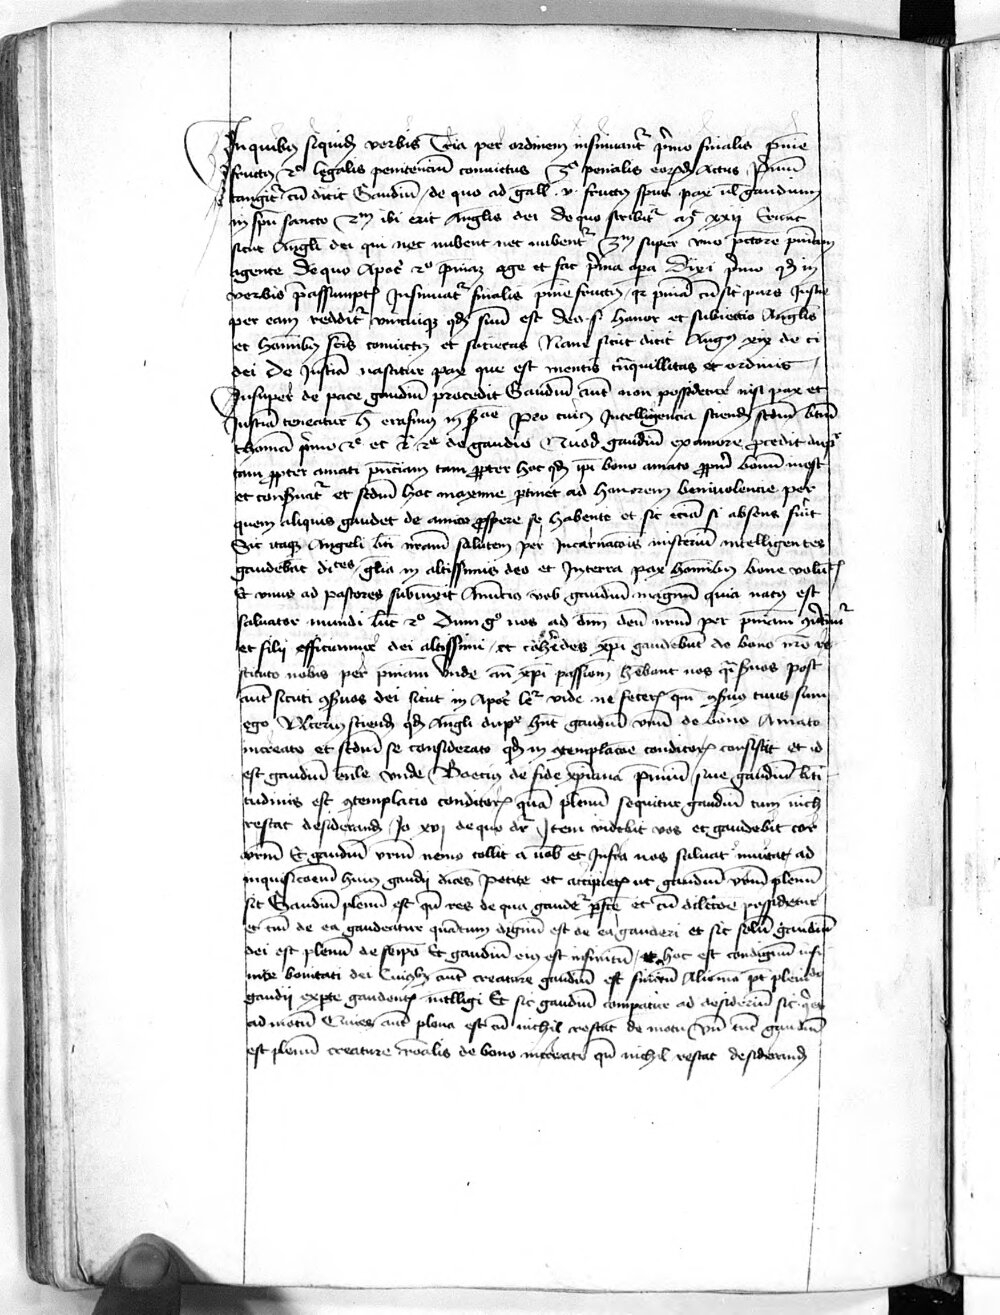 In quibus siquid verbis Tria per ordinem insinuantr primo finalis pnie
fructus 2o legalis penitencium convictus 3o penalis eorund actus Primum
tangitr cu dicit Gaudiu de quo ad gall v fructus spus pax vl gaudium
in spu sancto 2m ibi erit Anglis dei de quo scribitr mt xxij Erunt
sicut Angli dei qui nec nubent nec nubentr 3m super uno pctore pniam
agente De quo Apoc 2o pniaz age et fac prima opa Dixi primo qd in
verbis passumpt Insinuatr finalis pnie fructus qr pnia cu sit pars Iusticie
per eam redditr unicuique qd suu est deo s honor et subiectio Anglis
et hominibus scis convictus et societas Nam sicut dicit Augus xix de ci
dei De Iusticia nascitur pax que est mentis tnquillitas et ordinis
Insuper de pace gaudiu procedit Gaudiu aut non possidetur nisi pax et
Iusticia teneatur h erasmus in Pro cuius Intelligencia sciend scdm btm
thomam primo 2e et 2a 2e de gaudio Quod gaudiu ex amore procedit dupr
tam propter amati pnciam tam propter hoc qd ipi bono amato propriu bonu inest
et conservatr et scdm hoc maxime ptinet ad honorem benivolencie per
quem aliquis gaudet de amico prospere se habente et sic eciam si absens fuerit
Sic itaque Angeli bti nram salutem per Incarnacois misteriu intelligentes
gaudebat dices glia in altissimis deo et In terra pax hominibus bone volut
Et unus ad pastores subiunxit Annucio vob gaudiu magnum quia natus est
salvator mundi luc 2o Dum go nos ad dnm deu nrm per pniam
et filii efficimur dei altissimi et coheredes xpi gaudebut de bono nro re
stituto nobis per pniam Unde an xpi passiom hebant nos qsi suos post
aut sicuti conservos dei sicut in Apoc vide ne feceris qm consvus tuus sum
ego Ulterius sciend qd Angli dupr hnt gaudiu unu de bono Amato
increato et scdm se considerato qd in contemplacoe conditoris consistit et id
est gaudiu Unde Boecius de fide xpiana primu sive gaudiu bti
tudinis est contemplacio conditoris qua plenu sequitur gaudiu cum nich
restat desiderand Jo xvi de quo dr Item videbit vos et gaudebit cor
vrm Et gaudiu vrm nemo tollit a vob et Infra nos salvat invitat ad
inquisicoem huius gaudii dices Petite et accipietis ut gaudiu vrm plenu
sit Gaudiu plenu est qn res de qua gaudetr pfcte et cu dilcoe possidetur
et cum de ea gaudeatur quantum dignu est de ea gauderi et sic solu gaudiu
dei est plenu de seipso Et gaudiu eius est infinitu hoc est condignu infi
nite bonitati dei Cuiusl aut creature gaudiu est finitu Alio m pt plenitudo
gaudii expte gaudentis intelligi Et sic gaudiu comparatur ad desideriu sic quies
ad motum Quies aut plena est cu nichil restat de motu Un tuc gaudiu
est plenu creature roalis de bono increato qn nichil restat desiderand